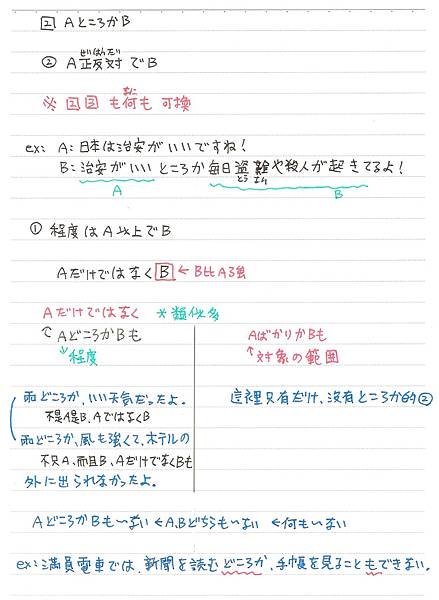 2 AところかB
ぜはんたい
② A正反対でB
なに
※ 2 3 も何も 可換
ex: A: 日本は治安がいいですね!
B: 治安がいい ところか 毎日盗難や殺人が起きてるよ!
とう なん
A B
① 程度はA以上でB
Aだけではなく B ← B比A多強
Aだけではなく *類似多
↑ AどころかBも AばかりかBも
↓程度 ↑対象の範囲
雨どころか、いい天気だったよ。 這裡只有だけ、沒有ところか的②
不是但B、AではなくB
雨どころか、風も強くて、ホテルの
不只A、而且B、AだけでなくBも
外に出られなかったよ。
AどころかBも~ない ← A.Bどちらも~ない ← 何も~ない
ex: 満員電車では、新聞を読むどころか、手帳を見ることもできない。